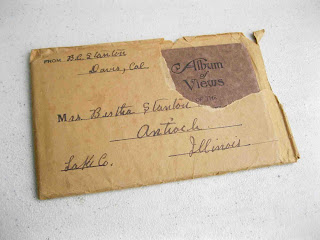 FROM B.C. Stanton
Davis, Cal.
Album
of
Views
OF THE
Mrs Bertha Stanton
Antioch
Lake Co.
Illinois